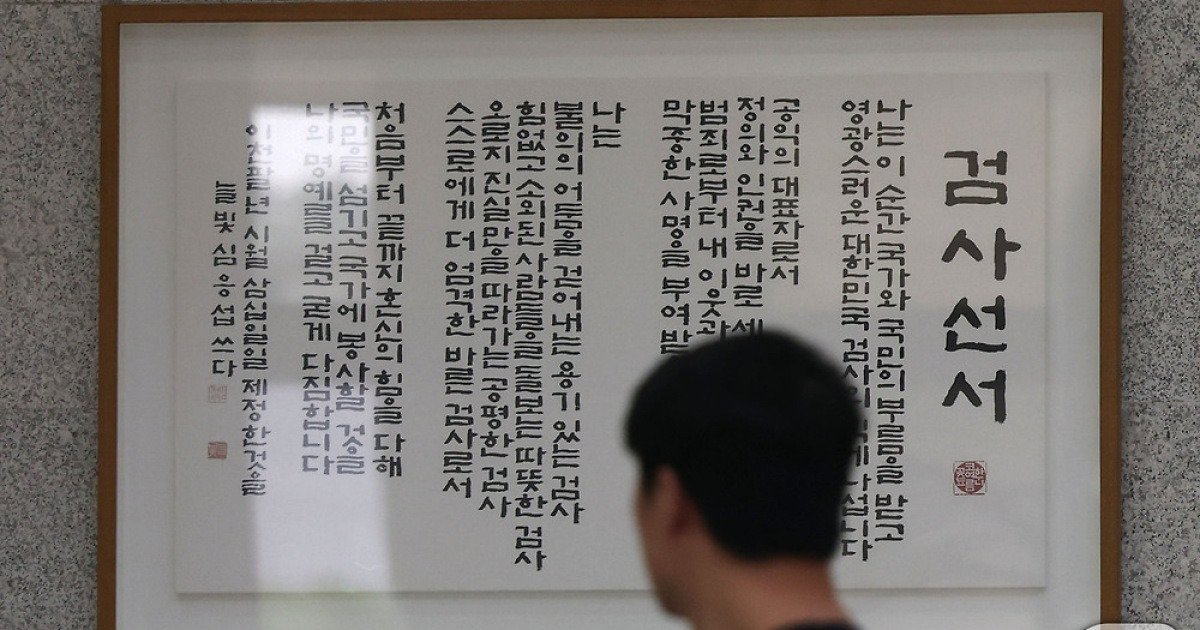 검사선서
나는 이 순간 국가와 국민의 부름을 받고
영광스러운 대한민국 검사의 나섭니다
공익의 대표자로서
정의와 인권을 바로 세
범죄로부터 내 이웃과
막중한 사명을 부여받
나는
불의의 어둠을 걷어내는 용기 있는 검사
힘없고 소외된 사람들을 돌보는 따뜻한 검사
오로지 진실만을 따라가는 공평한 검사
스스로에게 더 엄격한 바른 검사로서
처음부터 끝까지 혼신의 힘을 다해
국민을 섬기고 국가에 봉사할 것을
나의 명예를 걸고 굳게 다짐합니다
이천팔년 시월 삼십일일 제정한것을
늘빛 심응섭 쓰다